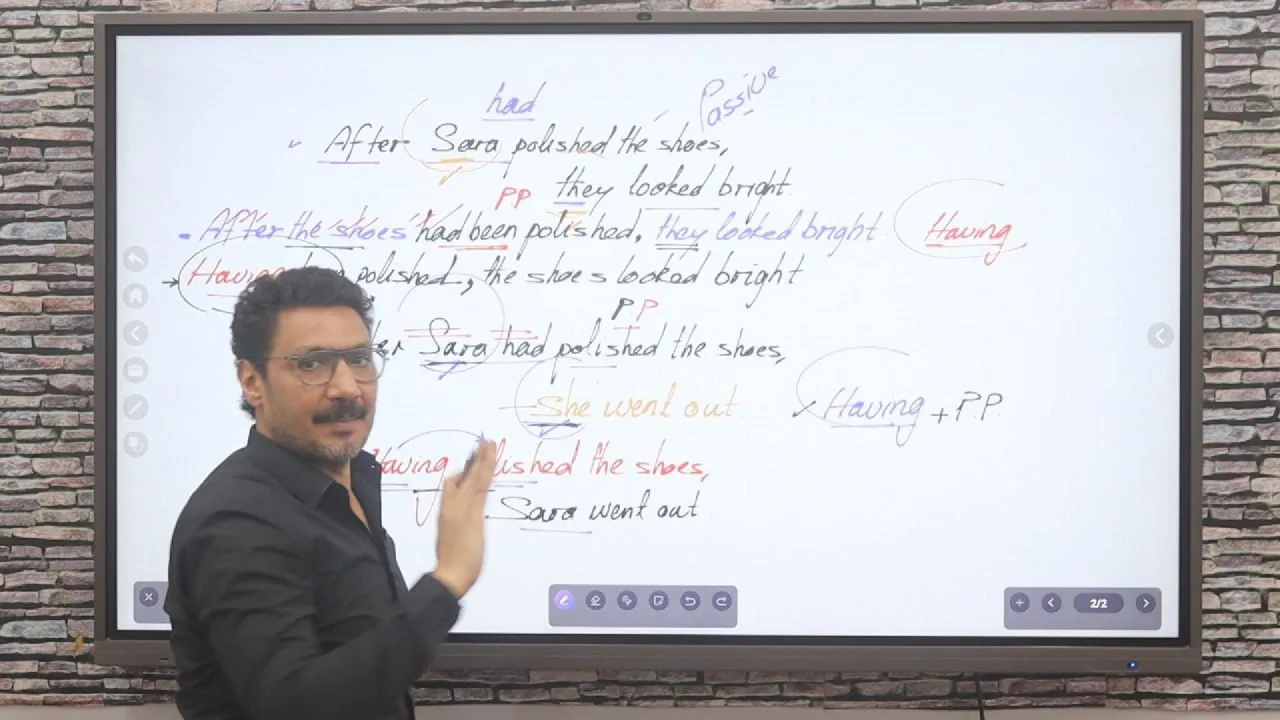 had
Passive
After Sara polished the shoes,
PP they looked bright.
After the shoes had been polished, they looked bright Having
Having polished, the shoes looked bright
PP
Sara had polished the shoes,
She went out Having + P.P.
Having the shoes,
Sara went out
2/2